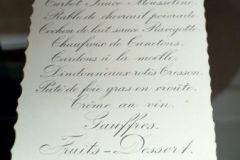 Turbot Sauce Mousseline
Rable de chevreuil poivrade
Cochon de lait sauce Ravigotte
Chaufroix de Canetons
Cardons à la moelle
Dindonneaux rotis Cresson
Pâté de foie gras en croûte
Crême au vin
Gauffres.
Fruits _ Dessert.